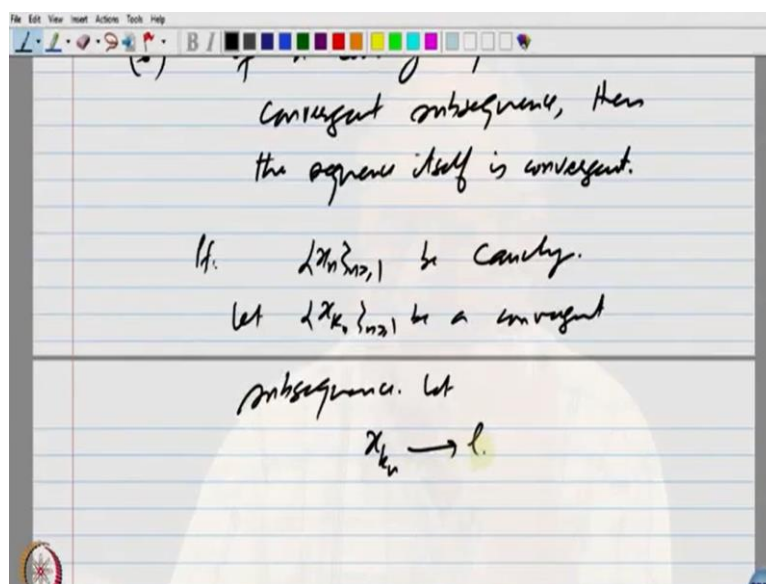 File Edit View Insert Actions Tools Help
B I
convergent subsequence, then
the sequence itself is convergent.
Pf. {xn}n≥1 be Cauchy.
Let {xkn}n≥1 be a convergent
subsequence. Let
xkn → l.